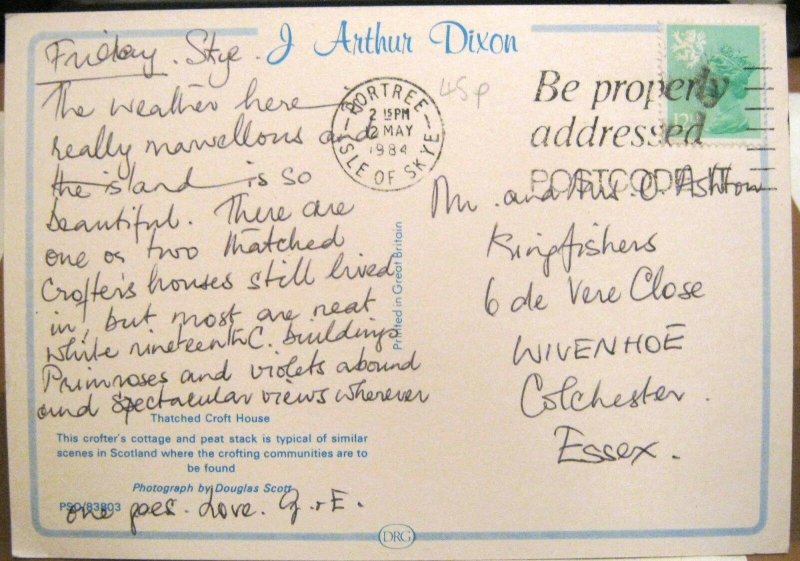 J Arthur Dixon
Friday. Skye.
The weather here is
really marvellous and
the island is so
beautiful. There are
one or two thatched
Crofter's houses still lived
in, but most are neat
white nineteenth C. buildings
Primroses and violets abound
and spectacular views wherever
one goes. Love. G. + E.
Thatched Croft House
This crofter's cottage and peat stack is typical of similar
scenes in Scotland where the crofting communities are to
be found
Photograph by Douglas Scott
PSO/83803
Printed in Great Britain
DRG
45p
PORTREE
2 15PM
2 MAY
1984
ISLE OF SKYE
Be properly
addressed
POSTCODE IT
Mr. and Mrs C. Ashton
Kingfishers
6 de Vere Close
WIVENHOE
Colchester.
Essex.